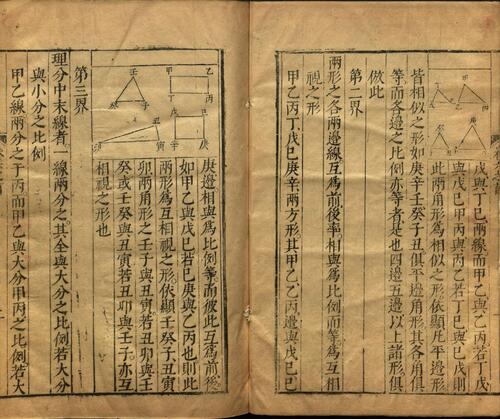 戊與丁巳兩線而甲乙若丁戊
與戊巳甲丙與丙乙若丁巳與巳戊則
此兩角形為相似之形依顯凡平邊形
皆相似之形如庚辛壬癸子丑俱平邊角形其各角俱
等而各邊之比例亦等者是也四邊五邊以上諸形俱
倣此
第二界
兩形之各兩邊線互為前後率相與為比例而等為互相
視之形
甲乙丙丁戊巳庚辛兩方形其甲乙乙丙邊與戊巳巳
庚邊相與為比例等而彼此互為前後
如甲乙與戊巳若巳庚與乙丙也則此
兩形為互相視之形依顯壬癸子丑寅
卯兩角形之壬子與丑寅若丑卯與壬
子或壬癸與丑寅若丑卯與壬子亦互
相視之形也
第三界
理分中末線者一線兩分之其全與大分之比例若大分
與小分之比例
甲乙線兩分之于丙而甲乙與大分甲丙之比例若大